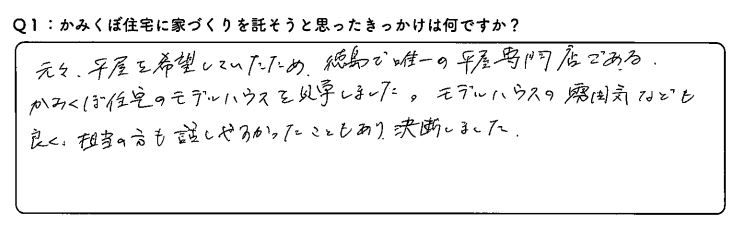 Q1：かみくぼ住宅に家づくりを託そうと思ったきっかけは何ですか？
元々、平屋を希望していたため、徳島で唯一の平屋専門店である、
かみくぼ住宅のモデルハウスを見学しました。モデルハウスの雰囲気なども
良く、担当の方も話しやすかったこともあり、決断しました。